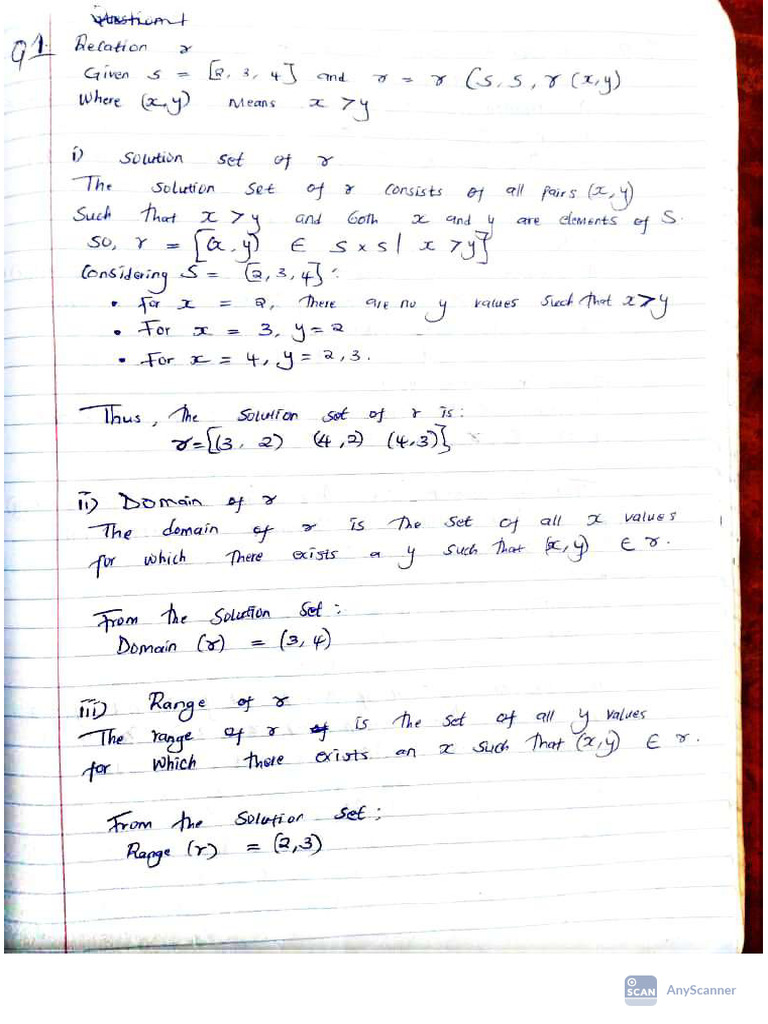 Question 1
Q1. Relation r
Given S = [2, 3, 4] and r = r (S, S, r (x,y)
Where (x,y) Means x > y
i) Solution set of r
The Solution Set of r consists of all pairs (x, y)
Such that x > y and both x and y are elements of S.
So, r = [(x, y) ∈ S x S | x > y]
Considering S = [2, 3, 4]:
• For x = 2, There are no y values such that x > y
• For x = 3, y = 2
• For x = 4, y = 2, 3.
Thus, the Solution set of r is:
r = {(3, 2) (4, 2) (4, 3)}
ii) Domain of r
The domain of r is the set of all x values
for which There exists a y such that (x, y) ∈ r.
From the Solution Set:
Domain (r) = (3, 4)
iii) Range of r
The range of r of is the set of all y values
for which there exists an x such that (x, y) ∈ r.
From the Solution Set:
Range (r) = (2, 3)
SCAN AnyScanner